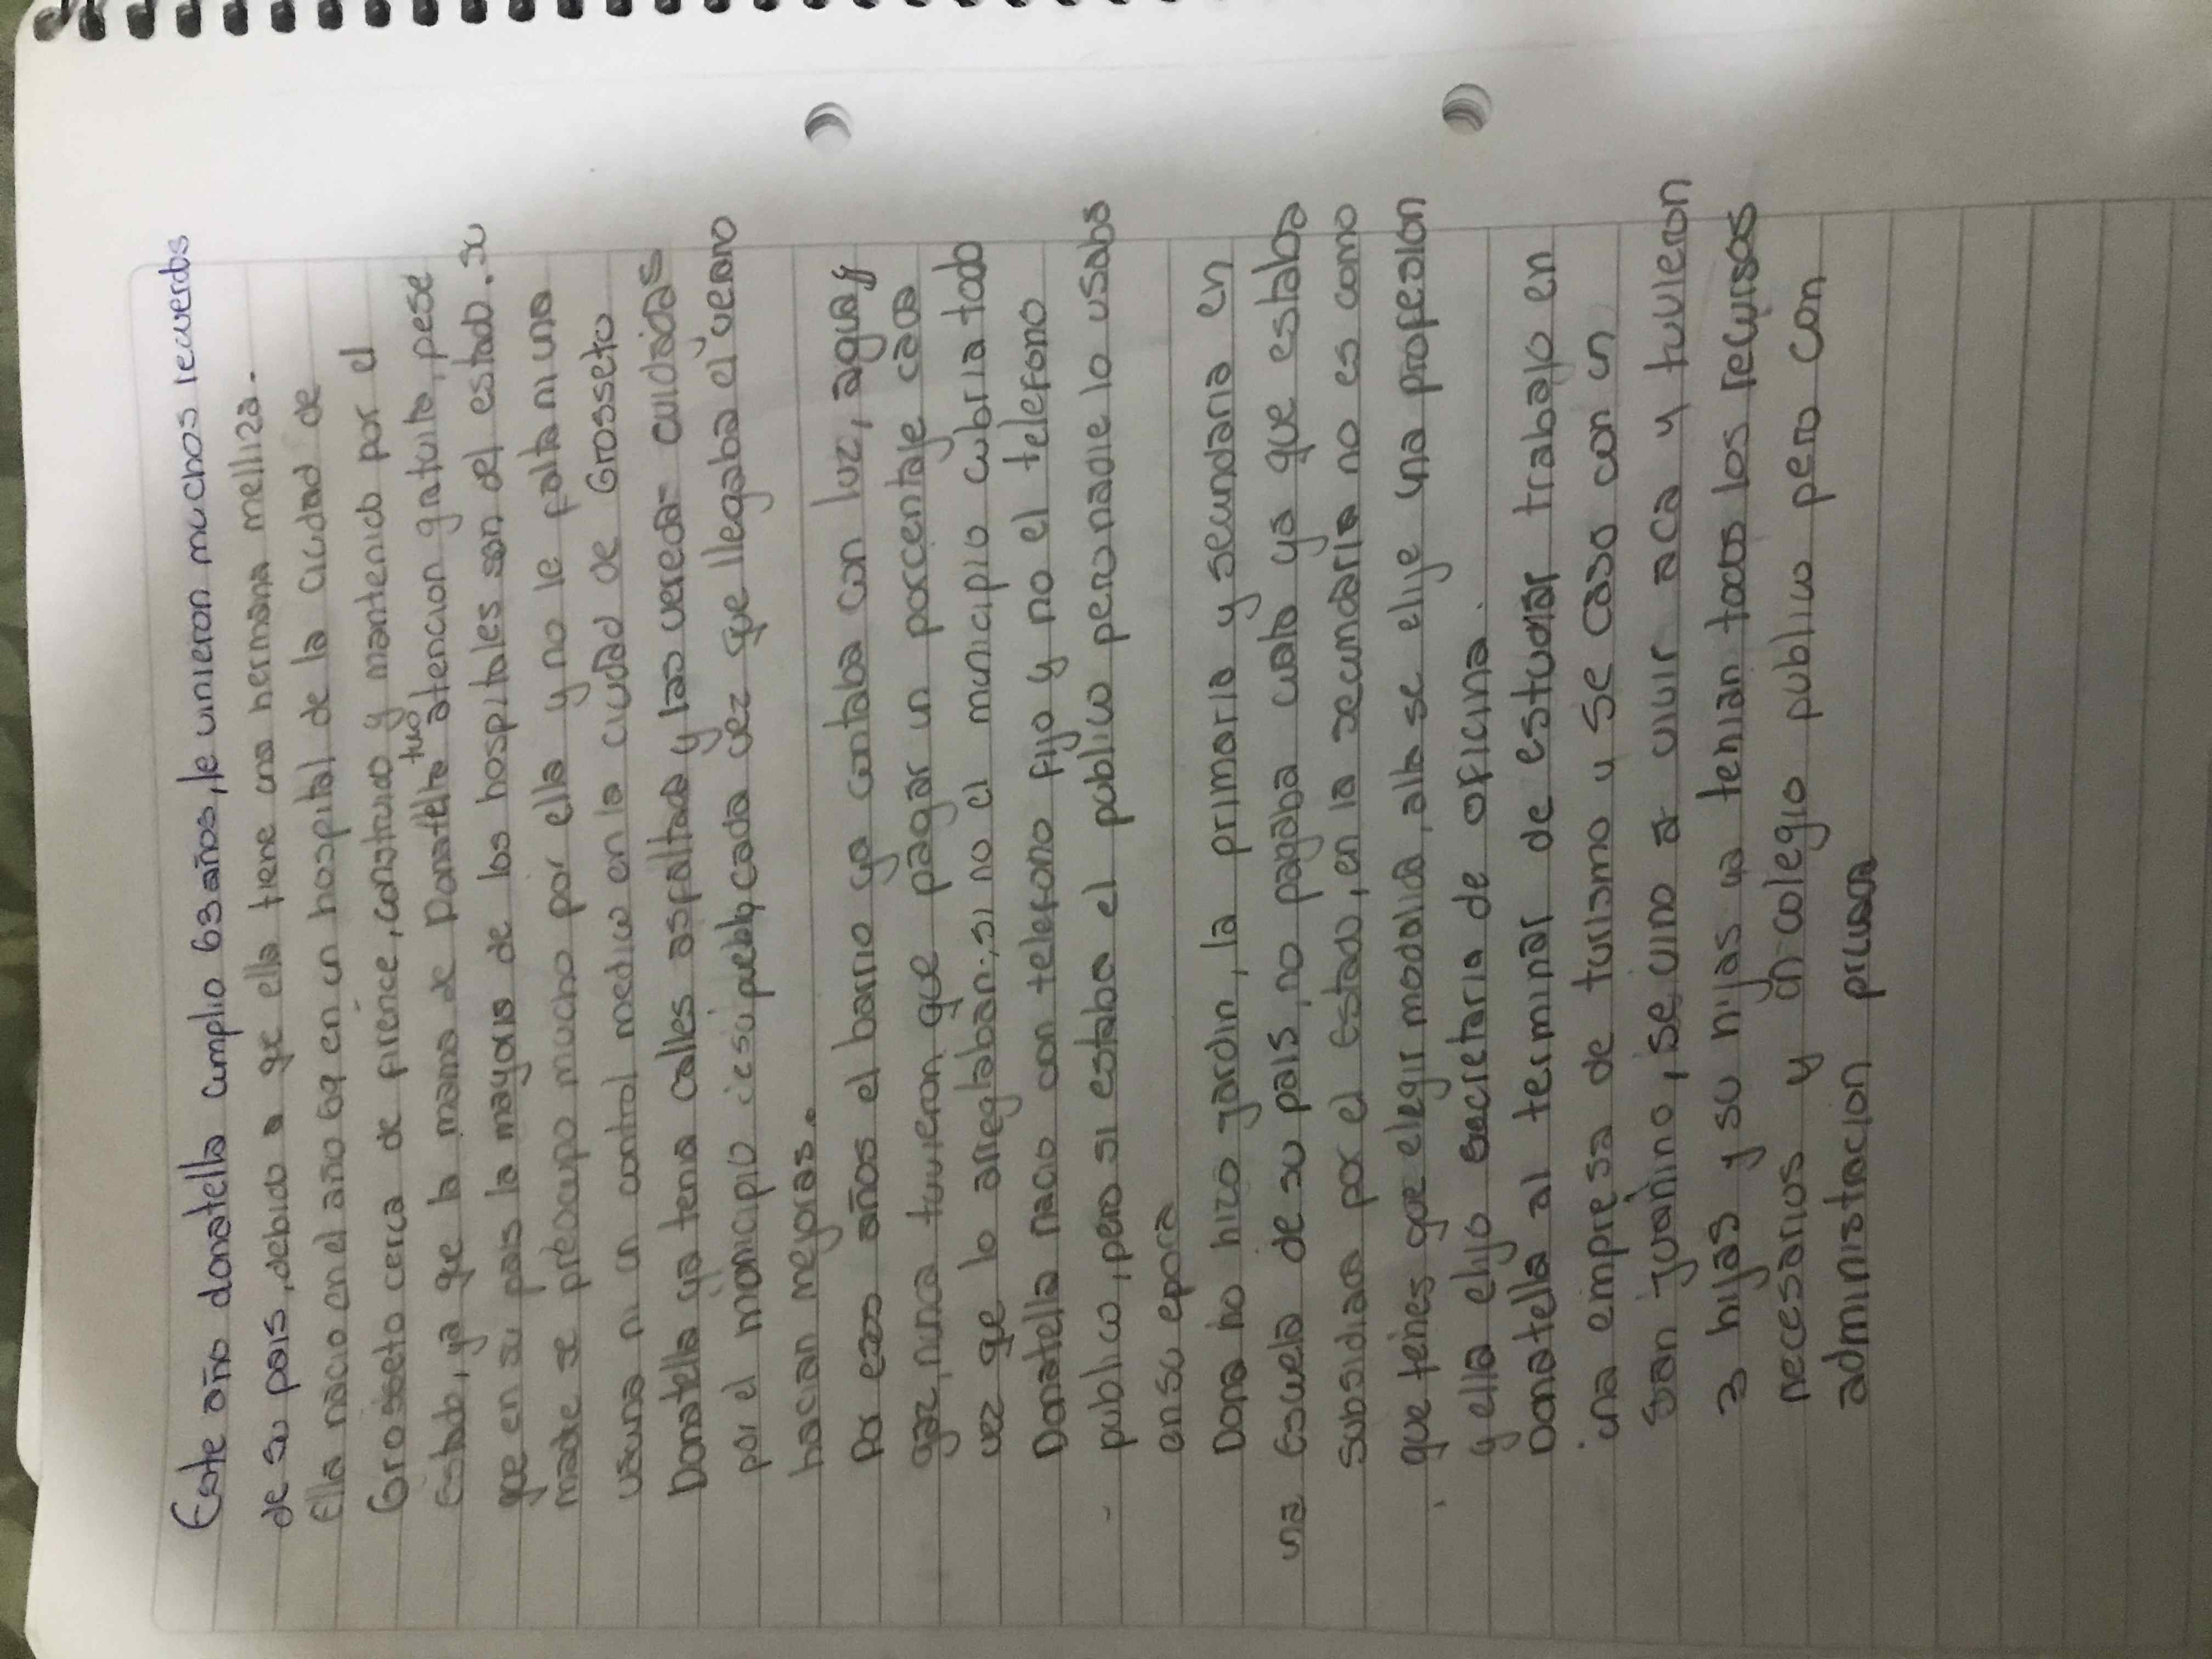 Este año donatella cumplio 63 años, le vinieron muchos recuerdos
de su pais, debido a qe ella tiene una hermana melliza.
Ella nacio en el año 69 en un hospital de la ciudad de
Grosseto cerca de firence, construido y mantenido por el
Estado, ya qe la mama de Donatella tuvo atencion gratuita, pese
qe en su pais la mayoria de los hospitales son del estado. su
madre se preocupo mucho por ella y no le falta ni una
vacuna ni un control medico en la ciudad de Grosseto
Donatella ya tenia calles asfaltada y las veredas cuidadas
por el municipio de su pueblo, cada vez que llegaba el verano
hacian mejoras.
Por esos años el barrio ya contaba con luz, agua y
gaz, nunca tuvieron que pagar un porcentaje cada
vez qe lo arreglaban, si no el municipio cubria todo
Donatella nacio con telefono fijo y no el telefono
publico, pero si estaba el publico pero nadie lo usaba
en su epora
Dona no hizo jardin, la primaria y secundaria en
una escuela de su pais, no pagaba cuota ya que estaba
subsidiada por el estado, en la secundaria no es como
que tenes que elegir modalida, alla se elije una profesion
y ella elijo secretaria de oficina.
Donatella al terminar de estudiar trabajo en
una empresa de turismo y se caso con un
San juanino, se vino a vivir aca y tuvieron
3 hijas y su hijas ya tenian todos los recursos
necesarios y un colegio publico pero con
administracion privada